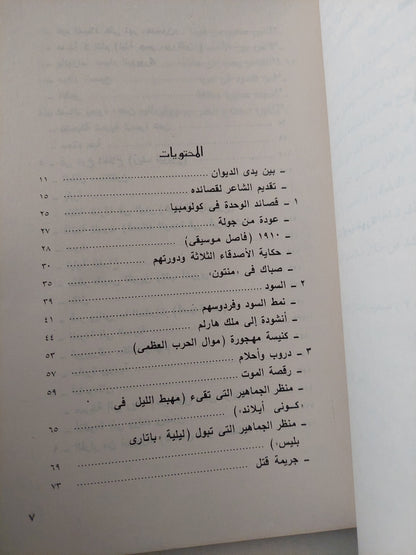 المحتويات
ــ بين يدى الديوان ........ ١١
ــ تقديم الشاعر لقصائده ........ ١٥
١ ــ قصائد الوحدة فى كولومبيا ........ ٢٥
ــ عودة من جولة ........ ٢٧
ــ ١٩١٠ (فاصل موسيقى) ........ ٢٨
ــ حكاية الأصدقاء الثلاثة ودورتهم ........ ٣٠
ــ صباك فى «منتون» ........ ٣٥
٢ ــ السود ........ ٣٩
ــ نمط السود وفردوسهم ........ ٤١
ــ أنشودة إلى ملك هارلم ........ ٤٤
ــ كنيسة مهجورة (موال الحرب العظمى) ........ ٥٣
٣ ــ دروب وأحلام ........ ٥٧
ــ رقصة الموت ........ ٥٩
ــ منظر الجماهير التى تقىء (مهبط الليل فى
«كونى أيلاند») ........ ٦٥
ــ منظر الجماهير التى تبول (ليلية «باتارى
بليس») ........ ٦٩
ــ جريمة قتل ........ ٧٣
٧